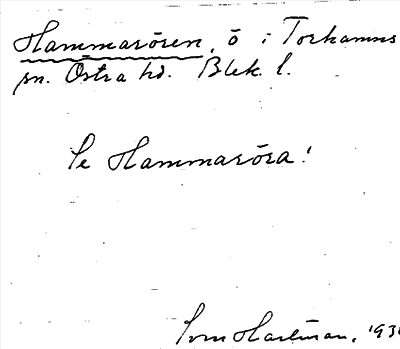 Hammarören, ö i Torhamns
sn. Östra hd. Blek. l.
Se Hammaröra!
Sven Hartman, 193